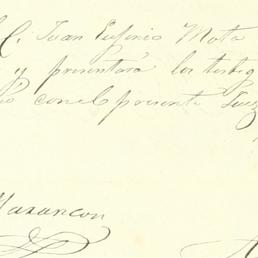 C. Juan Eufenio Mota
y presentará los testig
con el presente Juez
Mazancon